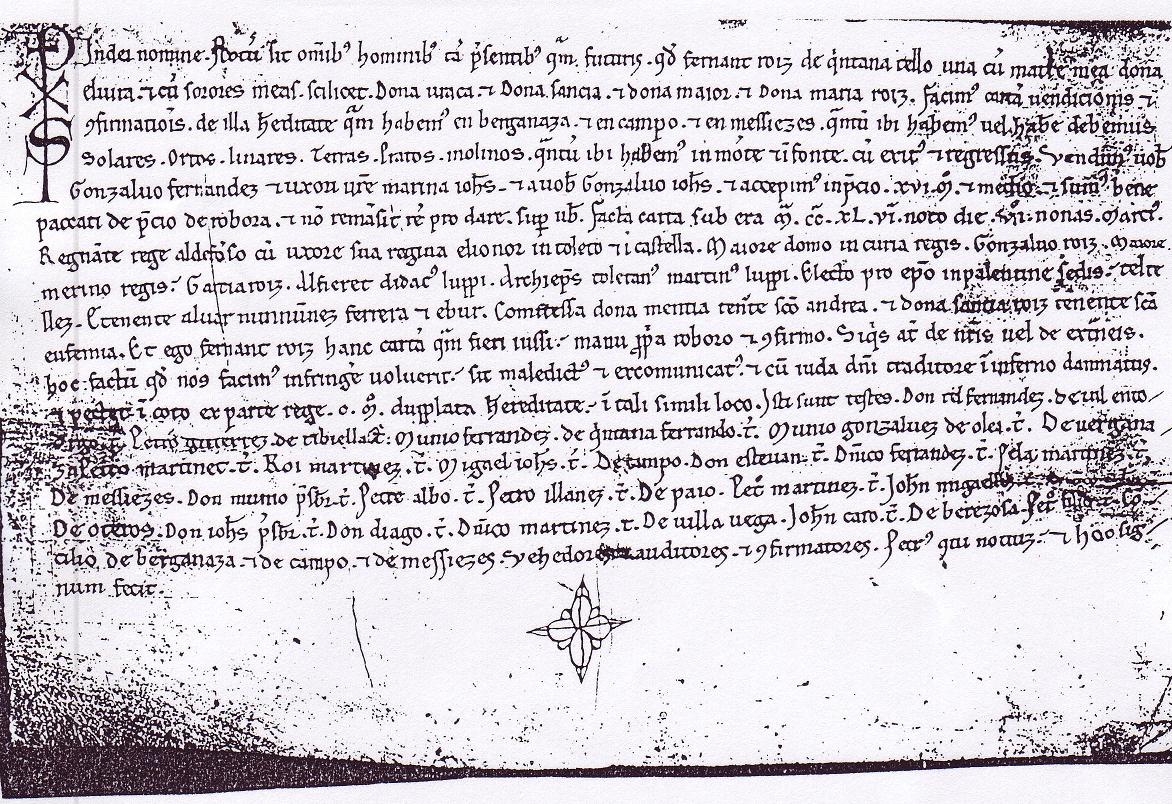 In dei nomine. Notũ sit omĩbꝰ hominibꝰ tã p̃sentibꝰ q̃m futuris. qđ fernant roiz de q̃ntana tello una cũ matre mea dona
eluira. ⁊ cũ sorores meas. scilicet. Dona uraca. ⁊ Dona sancia. ⁊ dona maior. ⁊ Dona maria roiz. facimꝰ cartã uendicionis ⁊
ꝯfirmatiõis. de illa h̃editate q̃m habemꝰ en berganaza. ⁊ en campo. ⁊ en messiezes. q̃ntũ ibi habemꝰ uel habe debemus
Solares. Ortos. linares. Terras. Pratos. molinos. q̃ntũ ibi habemꝰ in mõte ⁊ ĩ fonte. cũ exitꝰ ⁊ regressus. Vendimꝰ uob̃
Gonzaluo fernandez ⁊ uxori ur̃e marina ioh̃s. ⁊ a uob̃ Gonzaluo ioh̃s. ⁊ accepimꝰ in p̃cio. xvi. m̃. ⁊ medio. ⁊ sumꝰ bene
paccati de p̃cio de robora. ⁊ nõ remãsit rẽ pro dare. sup̃ ub̃. facta carta sub era m̃. cc̃. xL. vi. noto die. vi. nonas. Marci.
Regnãte rege aldefõso cũ uxore sua regina elionor in toleto ⁊ ĩ castella. Maiore domo in curia regis. Gonzaluo roiz. Maiore
merino regis. Garcia roiz. Alfieret didacꝰ luppi. Archiep̃s toletanꝰ martinꝰ luppi. Electo pro ep̃o in palentine sedis. telte
llez. E tenente aluar nunnũnez ferrera ⁊ ebur. Comitessa dona mentia tenẽte sc̃o andrea. ⁊ dona sancia roiz tenente sc̃a
eufemia. Et ego fernant roiz hanc cartã q̃m fieri iussi. manu p̃pa roboro ⁊ ꝯfirmo. Siq̃s at̃ de nr̃is uel de extr̃neis.
hoc factũ qđ nos facimꝰ infringẽ uoluerit. sit maledictꝰ ⁊ excomunicatꝰ. ⁊ cũ iuda dñi traditore ĩ inferno damnatus.
⁊ pectet ĩ coto ex parte rege. c. m̃. dupplata hereditate. ĩ tali simili loco. Isti sunt testes. Don tel fernandez. de
Petro guterrez de tibiella. t̃. Munio fernandez. de q̃ntana fernando. t̃. Munio gonzaluez de olea. t̃. De vergana
za Petro martinet. t̃. Roi martinez. t̃. Migael ioh̃s. t̃. De campo. Don estevan. t̃. Dñico fernandez. t̃. Pela martinez. t̃.
De messiezes. Don munio p̃sbr̃. t̃. Petre albo. t̃. Petro illanez. t̃. De paio. Pet̃ martinez. t̃. John migaellez.
De oteros. Don ioh̃s p̃sbr̃. t̃. Don diago. t̃. Dñico martinez. t. De uilla uega. John caro. t̃. De berezosa.
cilio de berganaza. ⁊ de campo. ⁊ de messiezes. Vehedores auditores. ⁊ ꝯfirmatores. Petrꝰ qui notuit. ⁊ hoc sig
num fecit.